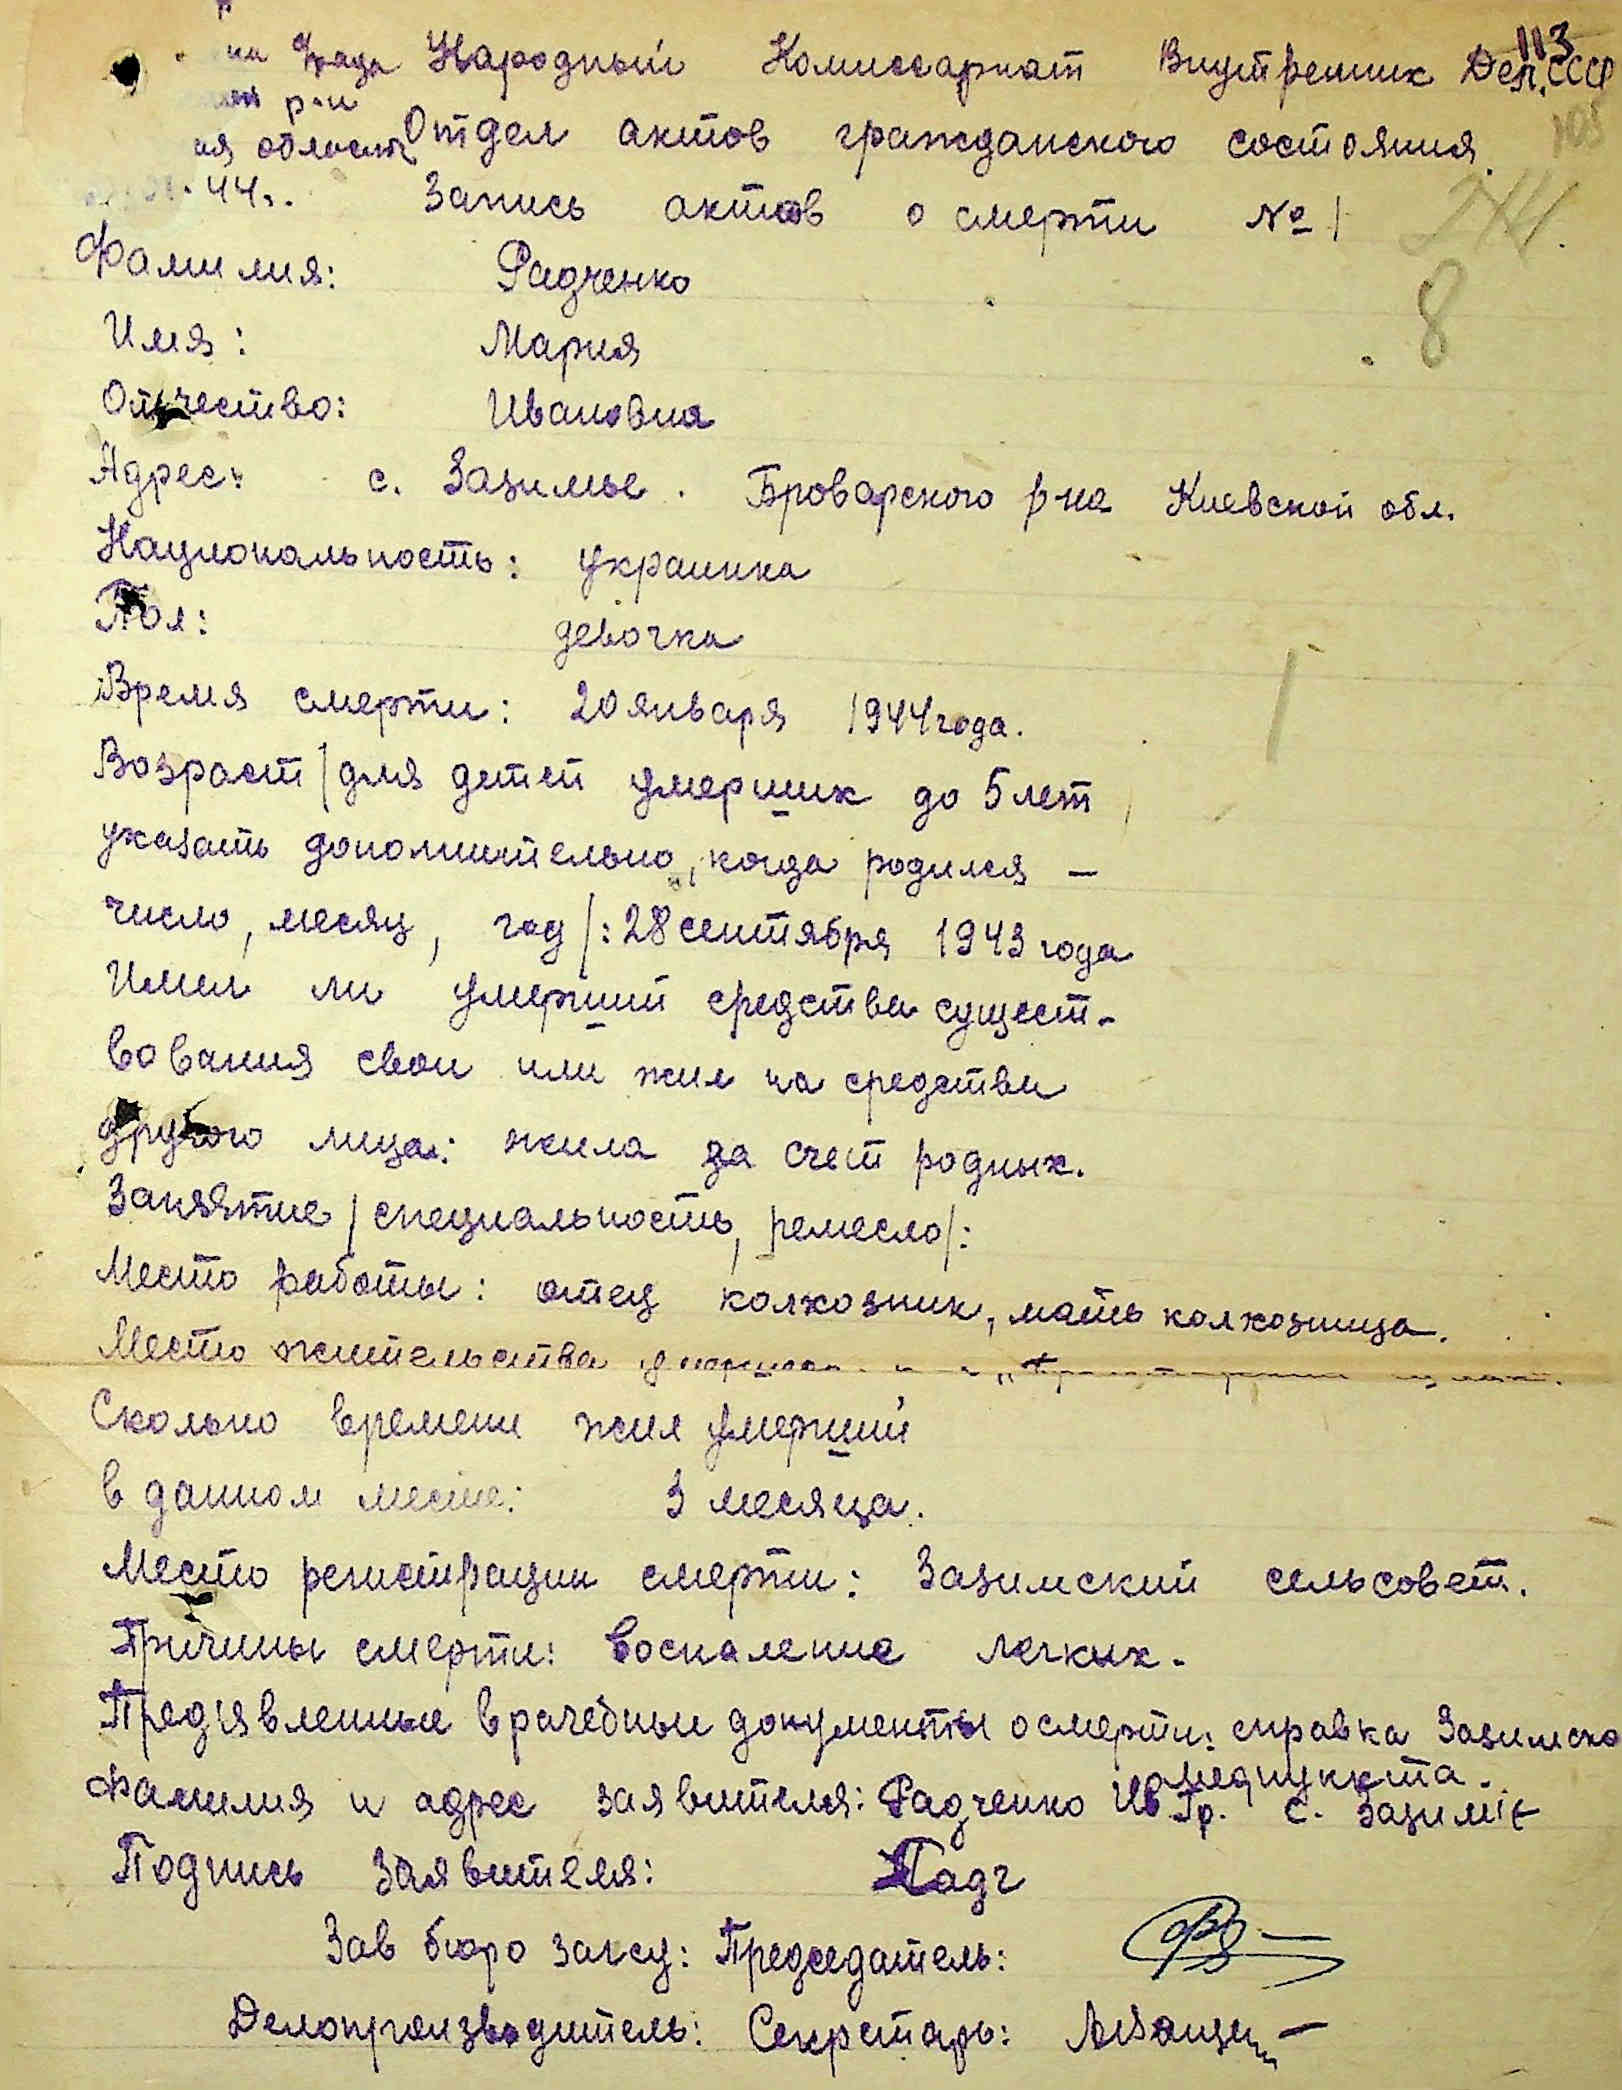 113
Народный Комиссариат Внутрених Дел. СССР
р-н
Отдел актов гражданского состояния
105
ая область
44 г.
Запись актов о смерти № 1
Фамилия: Радченко
8
Имя: Мария
Отчество: Ивановна
Адрес: с. Зазимье. Броварского р-на Киевской обл.
Национальность: украинка
Пол: девочка
Время смерти: 20 января 1944 года.
Возраст /для детей умерших до 5 лет
указать дополнительно, когда родился –
число, месяц, год/: 28 сентября 1943 года
Имел ли умерший средства сущест-
вования свои или жил на средства
другого лица: жила за счет родных.
Занятие /специальность, ремесло/:
Место работы: отец колхозник, мать колхозница.
Место жительства
Сколько времени жил умерший
в данном месте: 3 месяца.
Место регистрации смерти: Зазимский сельсовет.
Причины смерти: воспаление легких.
Пред'явленные врачебные документы о смерти: справка Зазимско
медпункта.
Фамилия и адрес заявителя: Радченко Ив. Гр. с. Зазиміє
Подпись заявителя: Радч
Зав бюро загсу: Председатель:
Делопроизводитель: Секретарь: